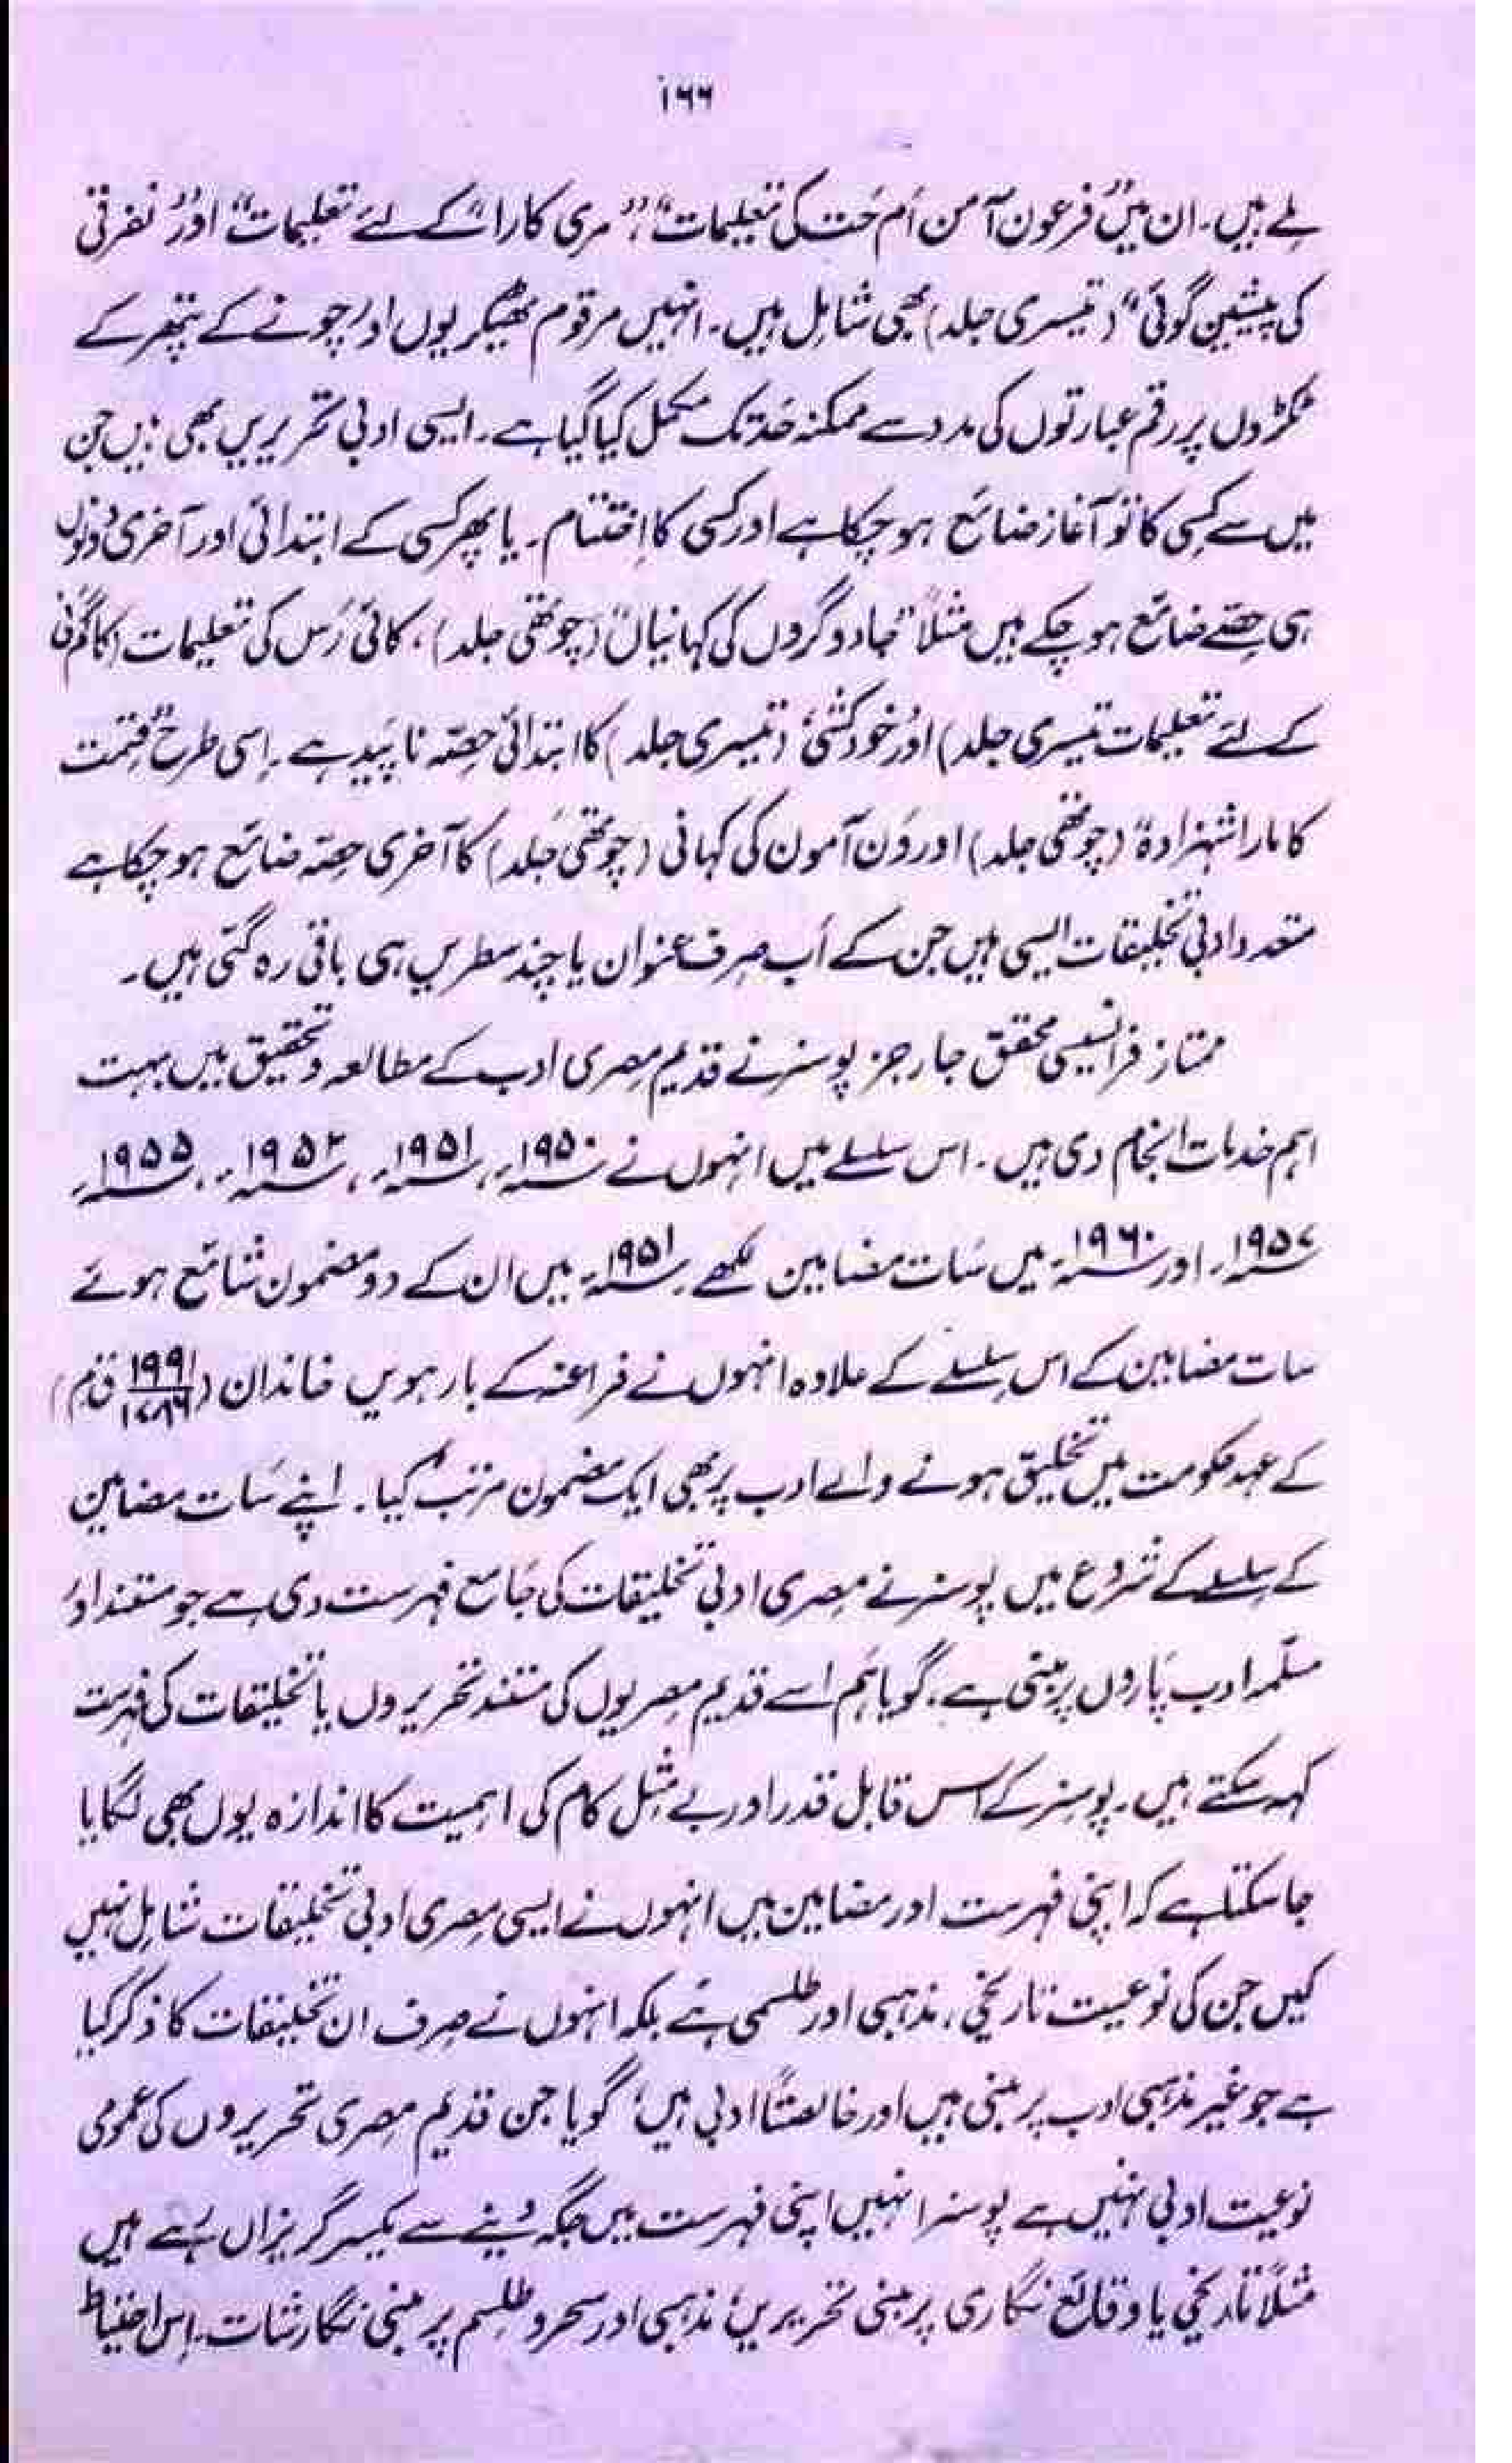 ۱۶۶
ملے ہیں۔ ان میں "فرعون آمن اُم حَت کی تعلیمات"، "مری کارا" کے لئے تعلیمات" اور "نفرتی
کی پیشین گوئی" (تیسری جلد) بھی شامل ہیں۔ انہیں مرقوم ٹھیکریوں اور چونے کے پتھر کے
ٹکڑوں پر رقم عبارتوں کی مدد سے ممکنہ حد تک مکمل کیا گیا ہے۔ ایسی ادبی تحریریں بھی ہیں جن
میں سے کسی کا تو آغاز ضائع ہو چکا ہے اور کسی کا اختتام۔ یا پھر کسی کے ابتدائی اور آخری دونوں
ہی حصے ضائع ہو چکے ہیں مثلاً "جادوگروں کی کہانیاں" (چوتھی جلد)، کائی رُس کی تعلیمات (کاگمنی
کے لئے تعلیمات تیسری جلد) اور "خودکشی" (تیسری جلد) کا ابتدائی حصّہ ناپید ہے۔ اِسی طرح "قسمت
کا مارا شہزادہ" (چوتھی جلد) اور وَن آمون کی کہانی (چوتھی جلد) کا آخری حصّہ ضائع ہو چکا ہے
متعدد ادبی تخلیقات ایسی ہیں جن کے اَب صرف عنوان یا چند سطریں ہی باقی رہ گئی ہیں۔
ممتاز فرانسیسی محقق جارجز پوسنر نے قدیم مصری ادب کے مطالعہ و تحقیق میں بہت
اہم خدمات انجام دی ہیں۔ اس سلسلے میں انہوں نے ۱۹۵۰ء، ۱۹۵۱ء، ۱۹۵۲ء، ۱۹۵۵ء
۱۹۵۷ء اور ۱۹۶۰ء میں سات مضامین لکھے۔ ۱۹۵۱ء میں ان کے دو مضمون شائع ہوئے
سات مضامین کے اس سلسلے کے علاوہ انہوں نے فراعنہ کے بارہویں خاندان (۱۹۹۱/۱۷۸۶ ق م)
کے عہد حکومت میں تخلیق ہونے والے ادب پر بھی ایک مضمون مرتب کیا۔ اپنے سات مضامین
کے سلسلے کے شروع میں پوسنر نے مصری ادبی تخلیقات کی جامع فہرست دی ہے جو مستند اور
مسلّمہ ادب پاروں پر مبنی ہے۔ گویا ہم اسے قدیم مصریوں کی مستند تحریروں یا تخلیقات کی فہرست
کہہ سکتے ہیں۔ پوسنر کے اس قابل قدر اور بے مثل کام کی اہمیت کا اندازہ یوں بھی لگایا
جا سکتا ہے کہ اپنی فہرست اور مضامین میں انہوں نے ایسی مصری ادبی تخلیقات شامل نہیں
کیں جن کی نوعیت تاریخی، مذہبی اور طلسمی ہے بلکہ انہوں نے صرف ان تخلیقات کا ذکر کیا
ہے جو غیر مذہبی ادب پر مبنی ہیں اور خالصتاً ادبی ہیں؛ گویا جن قدیم مصری تحریروں کی عمومی
نوعیت ادبی نہیں ہے پوسنر انہیں اپنی فہرست میں جگہ دینے سے یکسر گریزاں رہے ہیں
مثلاً تاریخی یا وقائع نگاری پر مبنی تحریریں؛ مذہبی اور سحر و طلسم پر مبنی نگارشات۔ اِس احتیاط